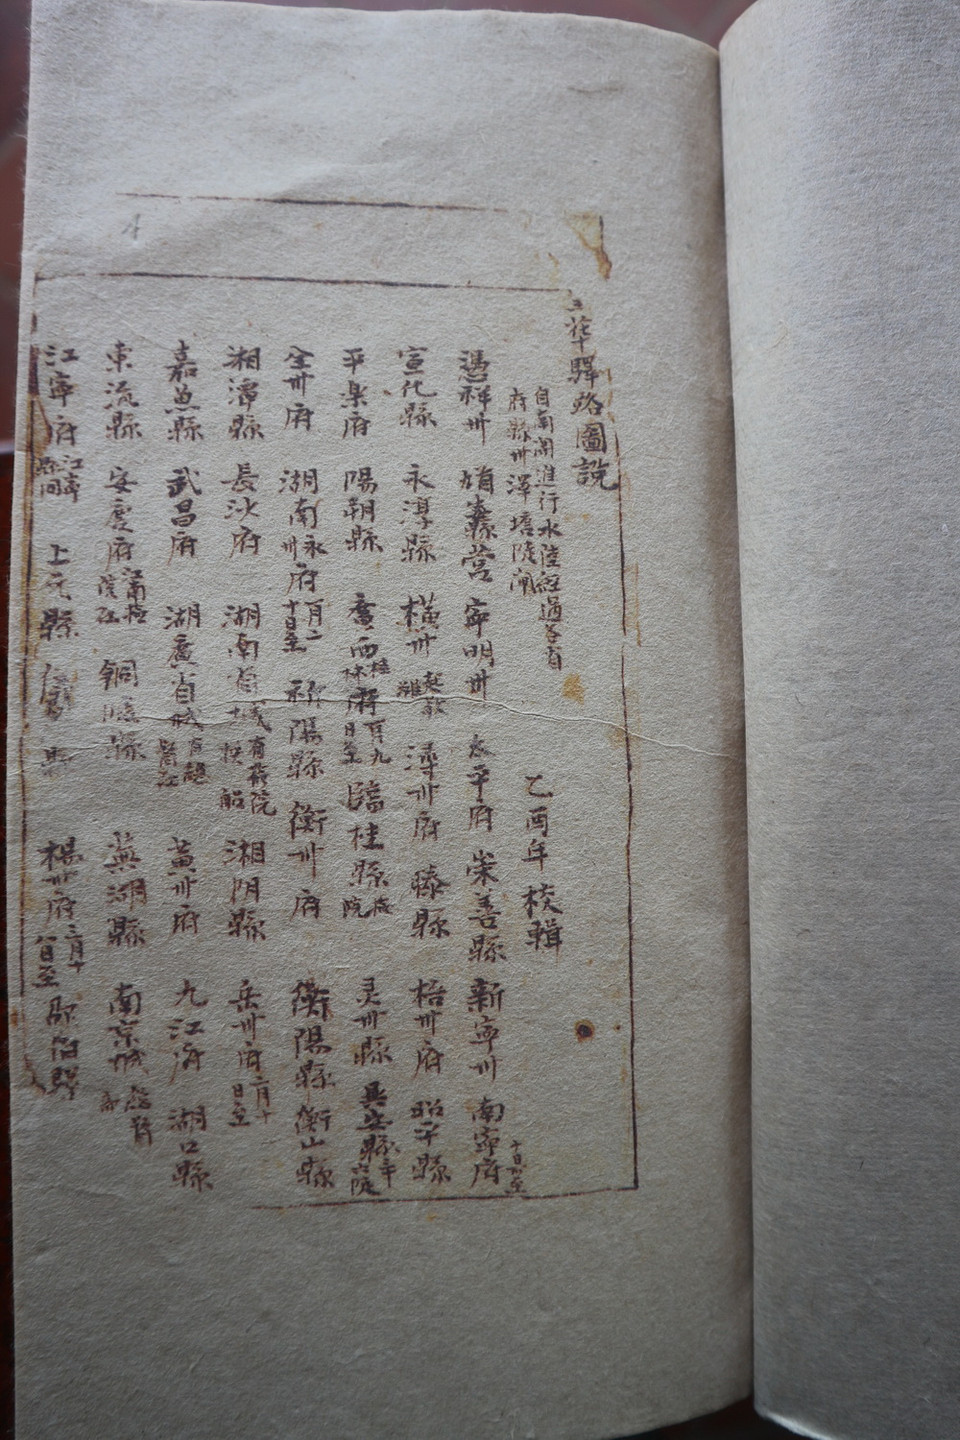 華驛路圖說
自南關進行水陸經過各省
府縣州澤塘陡閘
乙酉年校輯
憑祥州 寧明州 太平府 崇善縣 新寧州 南寧府
宣化縣 永淳縣 橫州 潯州府 藤縣 梧州府 昭平縣
平樂府 陽朔縣 廣西桂林府 臨桂縣 灵川縣 興安縣
全州府 湖南永州府 祁陽縣 衡州府 衡陽縣 衡山縣
湘潭縣 長沙府 湖南省城 有命院 換船 湘阴縣 岳州府 二月十日至
嘉魚縣 武昌府 湖廣省城 黃州府 九江府 湖口縣
東流縣 安慶府 銅陵縣 蕪湖縣 南京城
江寧府 上元縣 儀 縣 楊州府 三月十 日至